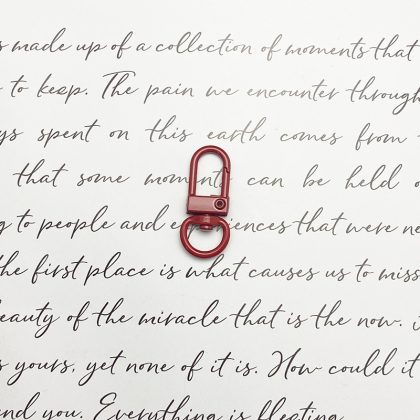 s made up of a collection of moments that
to keep. The pain we encounter through
ys spent on this earth comes from
that some moments can be held o
g to people and experiences that were ne
the first place is what causes us to miss
eauty of the miracle that is the now. i
s yours, yet none of it is. How could it
and you. Everything is fleeting.